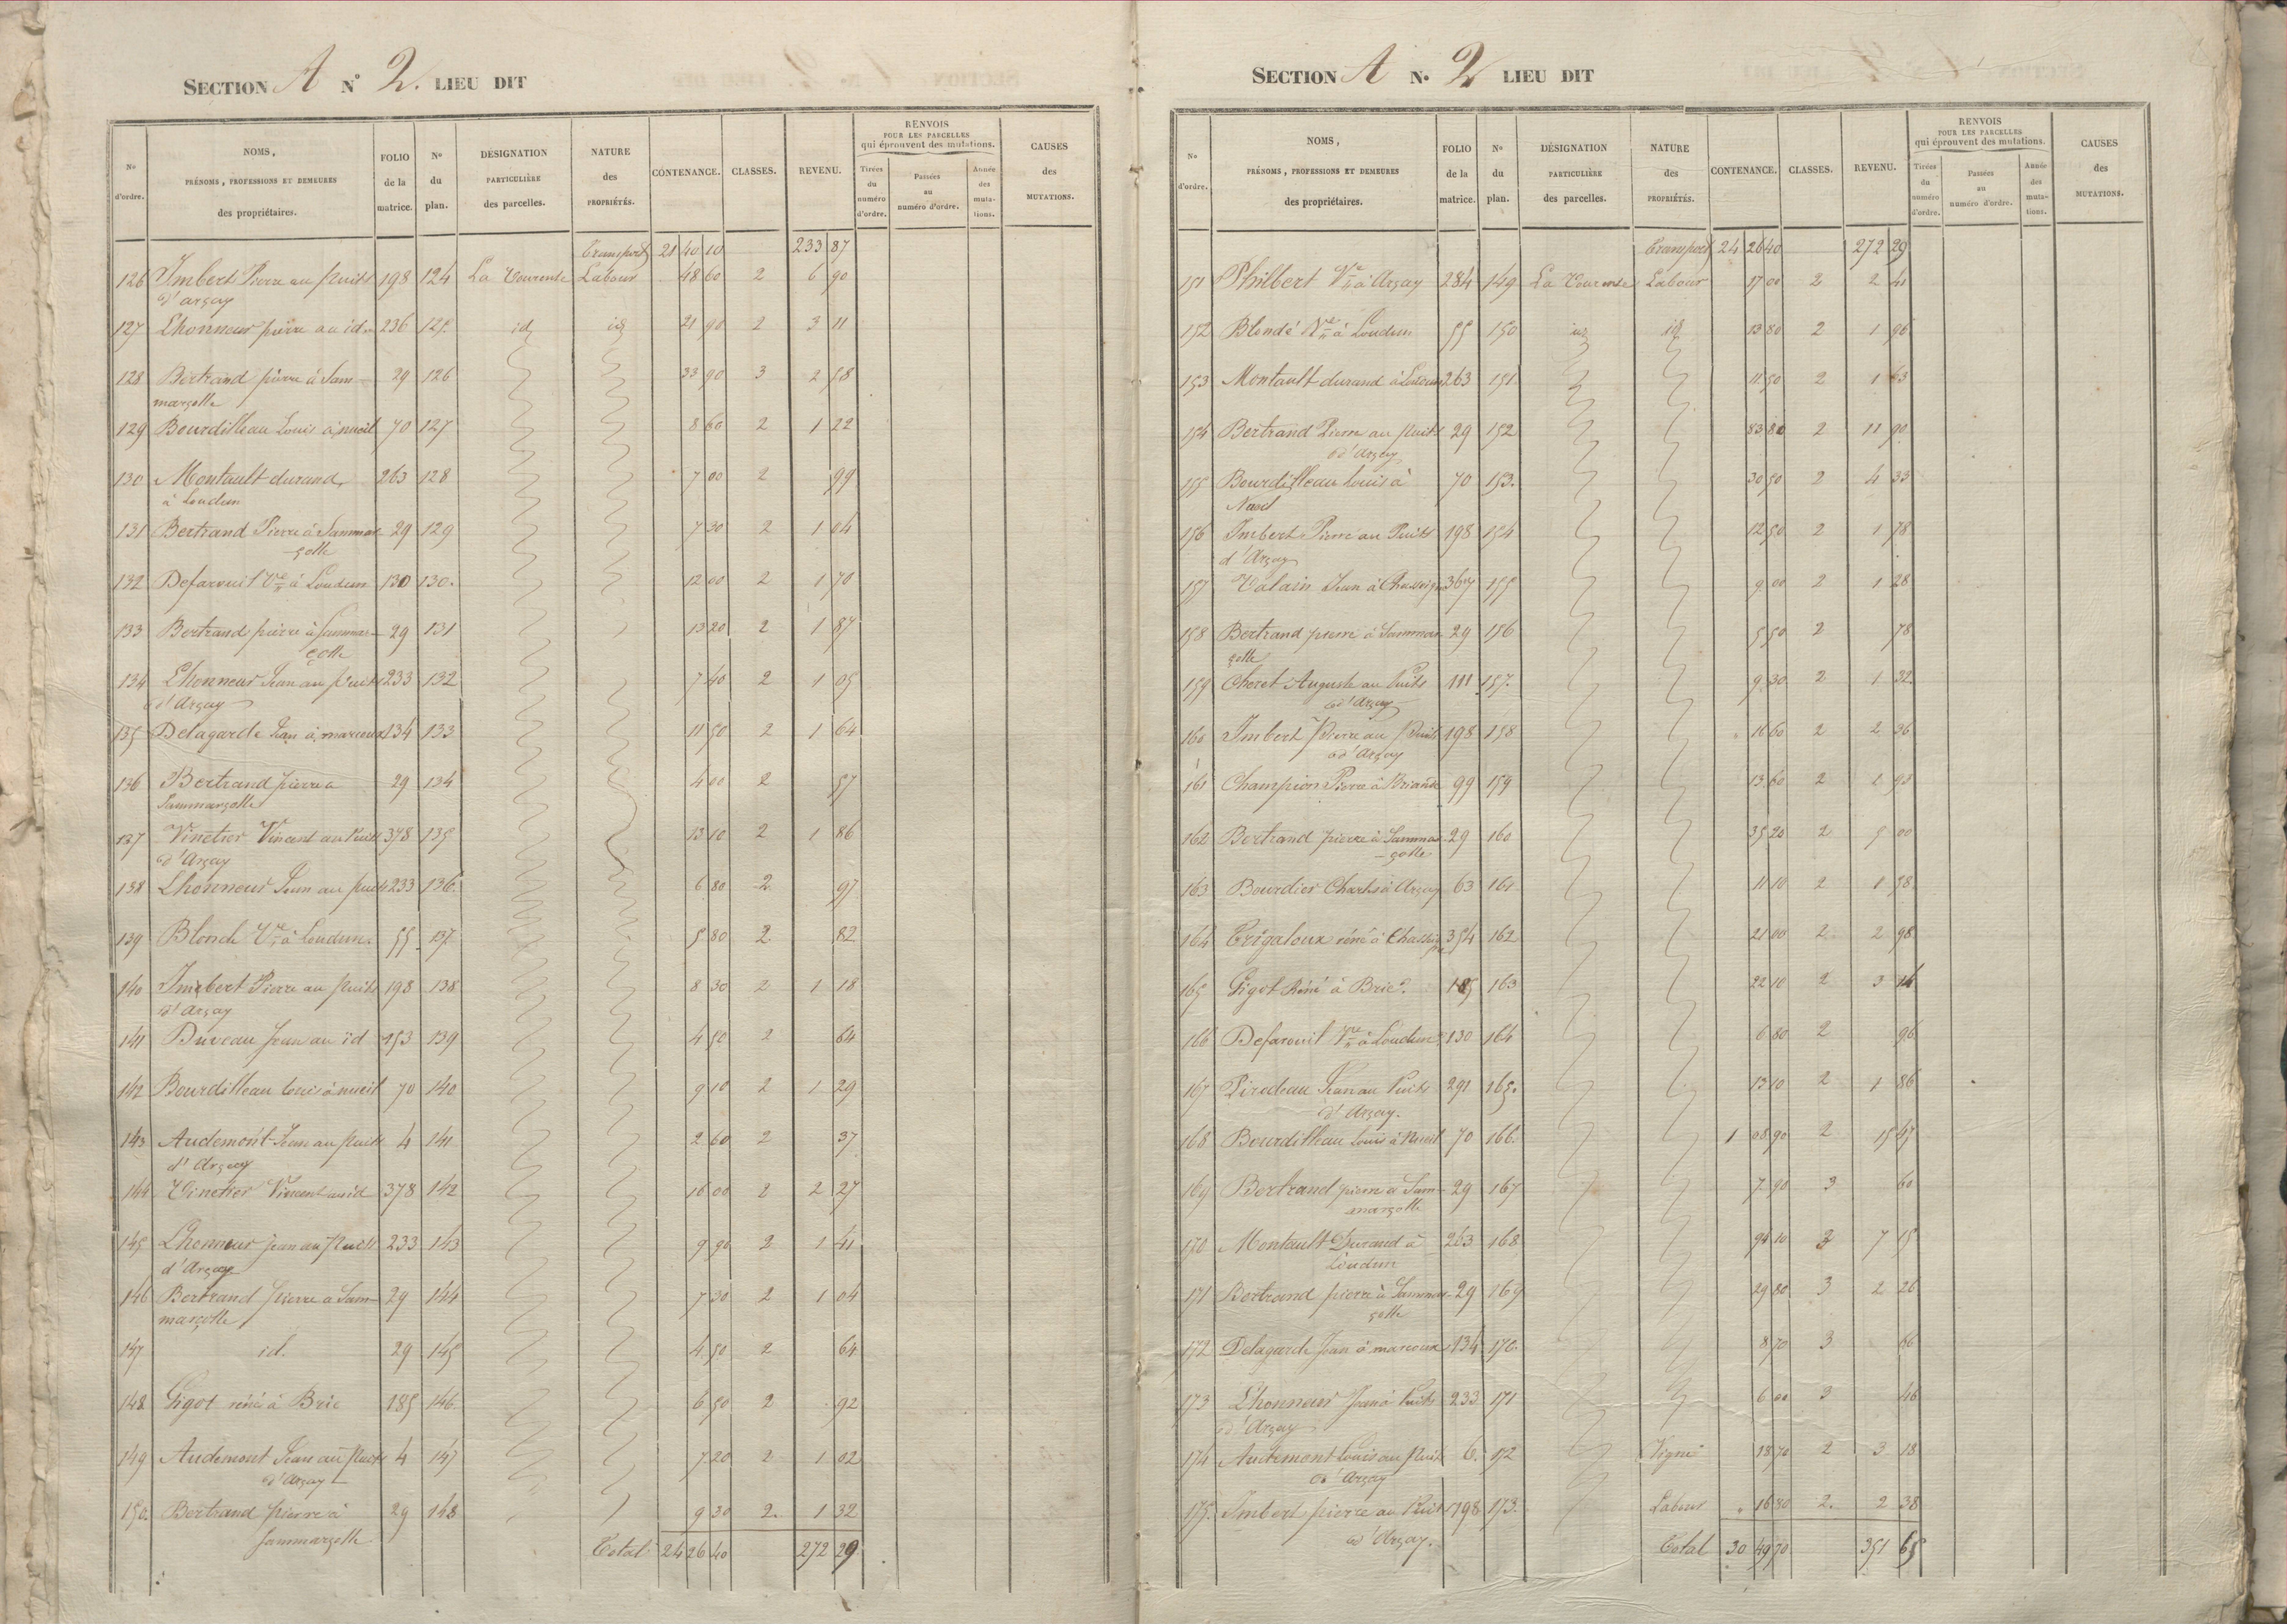 SECTION A N° 2. LIEU DIT
N° d'ordre. NOMS, PRÉNOMS, PROFESSIONS ET DEMEURES des propriétaires. FOLIO de la matrice. N° du plan. DÉSIGNATION PARTICULIÈRE des parcelles. NATURE des PROPRIÉTÉS. CONTENANCE. CLASSES. REVENU. RENVOIS POUR LES PARCELLES qui éprouvent des mutations. Tirées du numéro d'ordre. Passées au numéro d'ordre. Année des mutations. CAUSES des MUTATIONS.
Transport 21 40 10 233 87
126 Imbert Pierre au Puits 198 124 La Tourente Labour 48 60 2 6 90
d'arçay
127 Lhonneur pierre au id. 236 125 id id 21 90 2 3 11
128 Bertrand pierre à Sam- 29 126 33 90 3 2 58
marçolle
129 Bourdilleau Louis à nueil 70 127 8 60 2 1 22
130 Montault durand, 263 128 7 00 2 99
à Loudun
131 Bertrand Pierre à Sammar- 29 129 7 30 2 1 04
çolle
132 Defarouil Vve à Loudun 130 130. 12 00 2 1 70
133 Bertrand pierre à Sammar- 29 131 13 20 2 1 87
çolle
134 Lhonneur Jean au Puits 233 132 7 40 2 1 05
d'Arçay
135 Delagarde Jean à marcoux 134 133 11 50 2 1 64
136 Bertrand pierre à 29 134 4 00 2 57
Sammarçolle
137 Vinetier Vincent au Puits 378 135 13 10 2 1 86
d'Arçay
138 Lhonneur Jean au puits 233 136. 6 80 2 97
139 Blondé Vve à Loudun. 55 137 5 80 2. 82
140 Imbert Pierre au Puits 198 138 8 30 2 1 18
d'Arçay
141 Duveau Jean au id 153 139 4 50 2 64
142 Bourdilleau Louis à nueil 70 140 9 10 2 1 29
143 Audemont Jean au Puits 4 141 2 60 2 37
d'Arçay
144 Vinetier Vincent au id 378 142 16 00 2 2 27
145 Lhonneur Jean au Puits 233 143 9 90 2 1 41
d'Arçay
146 Bertrand pierre à Sam- 29 144 7 30 2 1 04
marçolle
147 id. 29 145 4 50 2 64
148 Gigot réné à Brie 185 146 6 50 2 92
149 Audemont Jean au Puits 4 147 7 20 2 1 02
d'Arçay
150. Bertrand pierre à 29 148 9 30 2. 1 32
Sammarçolle
Total 24 26 40 272 29
SECTION A N° 2 LIEU DIT
N° d'ordre. NOMS, PRÉNOMS, PROFESSIONS ET DEMEURES des propriétaires. FOLIO de la matrice. N° du plan. DÉSIGNATION PARTICULIÈRE des parcelles. NATURE des PROPRIÉTÉS. CONTENANCE. CLASSES. REVENU. RENVOIS POUR LES PARCELLES qui éprouvent des mutations. Tirées du numéro d'ordre. Passées au numéro d'ordre. Année des mutations. CAUSES des MUTATIONS.
Transport 24 26 40 272 29
151 Philbert Vve à Arçay 284 149 La Tourente Labour 17 00 2 2 41
152 Blondé Vve à Loudun 55 150 id id 13 80 2 1 96
153 Montault durand à Loudun 263 151. 11 50 2 1 63
154 Bertrand Pierre au Puits 29 152 83 80 2 11 90
d'Arçay
155 Bourdilleau Louis à 70 153. 30 50 2 4 33
Nueil
156 Imbert Pierre au Puits 198 154 12 50 2 1 78
d'Arçay
157 Valain Jean à 367 155 9 00 2 1 28
158 Bertrand pierre à Sammar- 29 156 5 50 2 78
çolle
159 Cheret Auguste au Puits 111 157. 9 30 2 1 32
d'Arçay
160 Imbert Pierre au Puits 198 158 16 60 2 2 36
d'Arçay
161 Champion Pierre à Briande 99 159 13 60 2 1 93
162 Bertrand pierre à Sammar- 29 160 35 20 2 5 00
çolle
163 Bourdier Charles à Arçay 63 161 11 10 2 1 58
164 Trigaloux réné à 354 162 21 00 2 2 98
165 Gigot Réné à Brie. 185 163 22 10 2 3 14
166 Defarouil Vve à Loudun 130 164 6 80 2 96
167 Pirodeau Jean au Puits 291 165. 13 10 2 1 86
d'Arçay.
168 Bourdilleau Louis à Nueil 70 166. 1 08 90 2 15 47
169 Bertrand pierre à Sam- 29 167 7 90 3 60
marçolle
170 Montault Durand à 263 168 94 10 3 7 15
Loudun
171 Bertrand pierre à Sammar- 29 169 29 80 3 2 26
çolle
172 Delagarde Jean à marcoux 134 170. 8 70 3 66
173 Lhonneur Jean à Puits 233 171 6 00 3 46
d'Arçay
174 Audemont Louis au Puits 6. 172 Vigne 18 70 2 3 18
d'Arçay
175. Imbert pierre au Puits 198 173. Labour 16 80 2. 2 38
d'Arçay.
Total 30 49 70 351 65